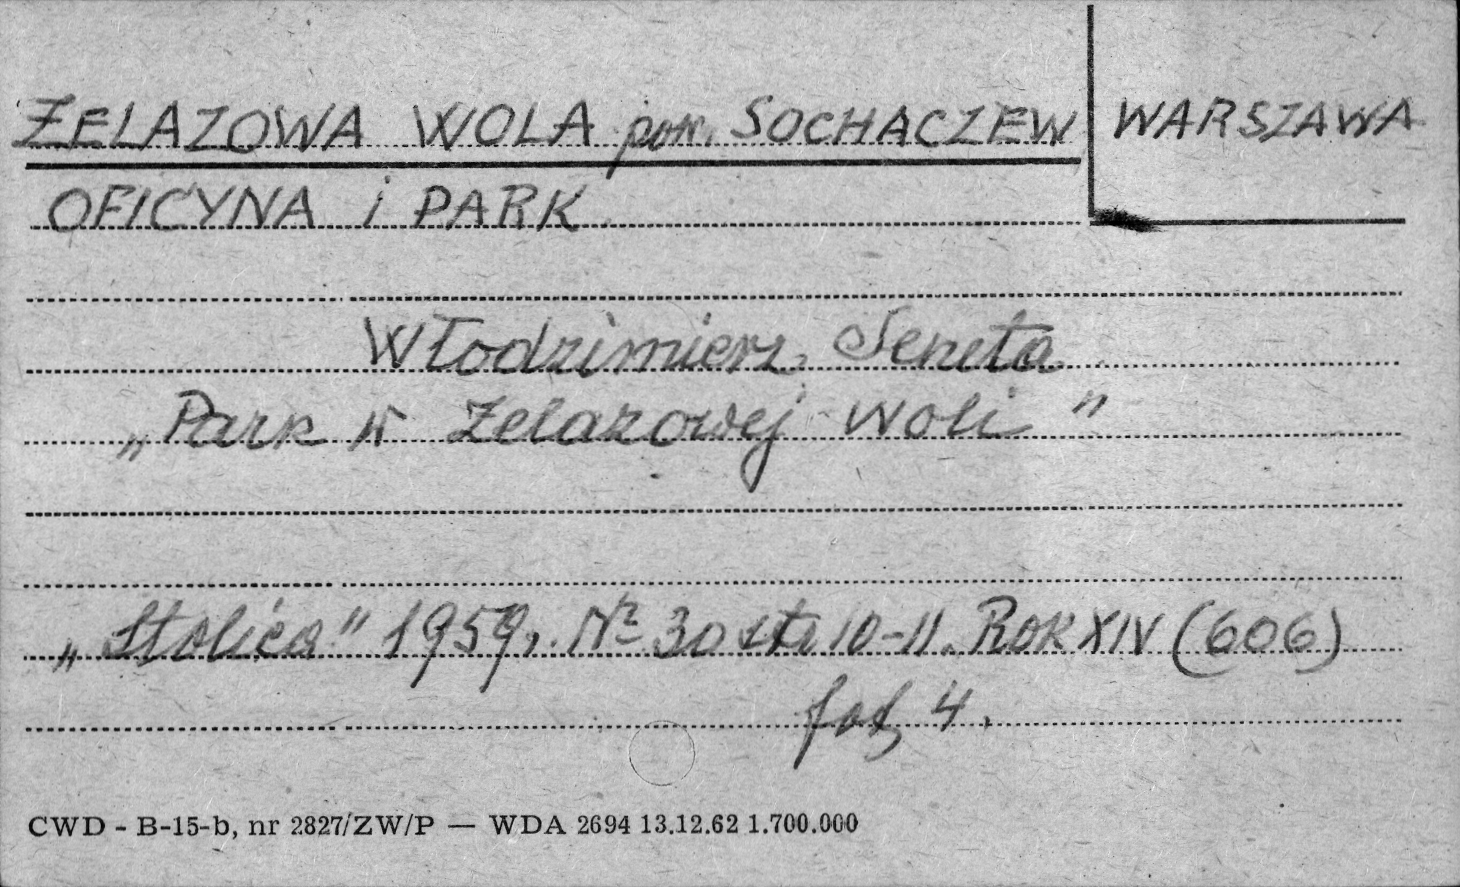 ŻELAZOWA WOLA pow. SOCHACZEW
WARSZAWA
OFICYNA i PARK
Włodzimierz Seneta
„Park w Żelazowej Woli"
„Stolica" 1959, Nr 30 str 10-11. Rok XIV (606)
fot 4.
CWD - B-15-b, nr 2827/ZW/P — WDA 2694 13.12.62 1.700.000